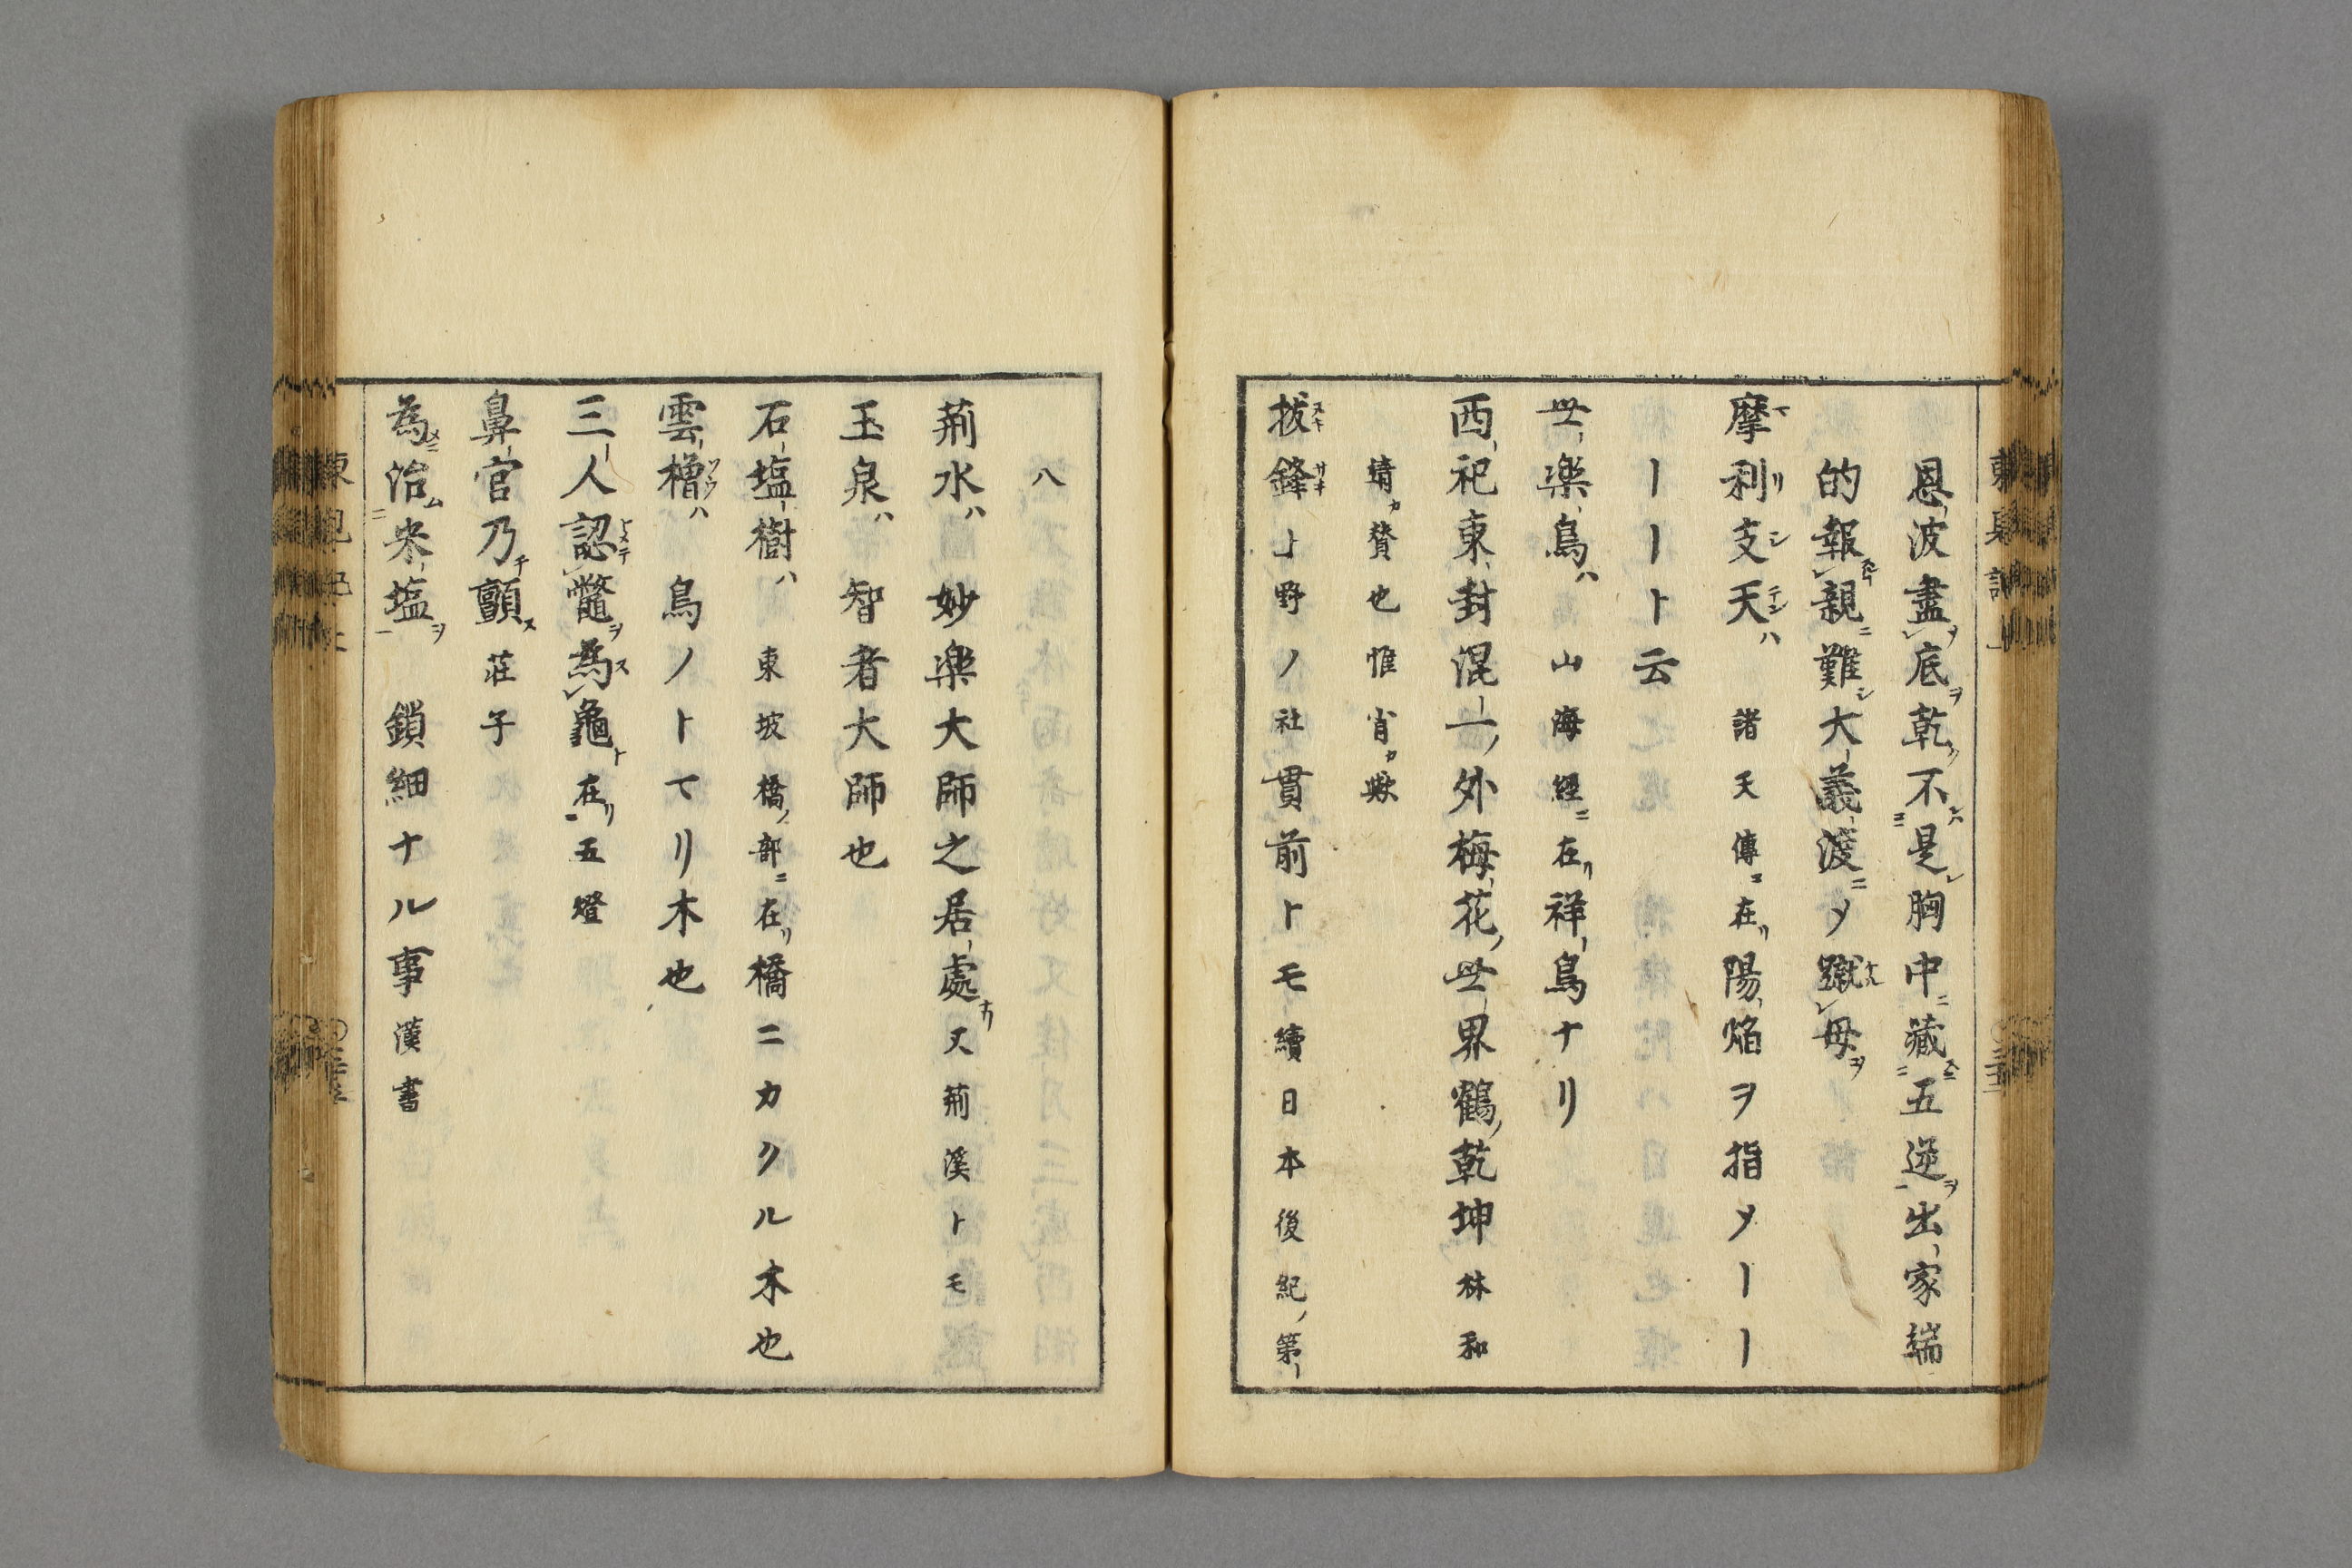 恩波盡底乾不是胸中藏五逆出家端
的報親難大義渡ニメ蹴母
摩利支天ハ 諸天傳ニ在リ陽焔ヲ指メーー
ーーート云
世楽鳥ハ 山海經ニ在リ祥鳥ナリ
西祀東封混一外梅花世界鶴乾坤 林和
靖カ賛也惟肖カ歟
抜鋒 上野ノ社貫前トモ續日本後紀ノ第
八
荊水ハ 妙楽大師之居處ナリ又荊溪トモ
玉泉ハ 智者大師也
石塩樹ハ 東坡橋ノ部ニ在リ橋ニカクル木也
雲櫓ハ 鳥ノトマリ木也
三人認鼈為龜 在リ五燈
鼻官乃顫 莊子
為治米塩 鎖細ナル事漢書